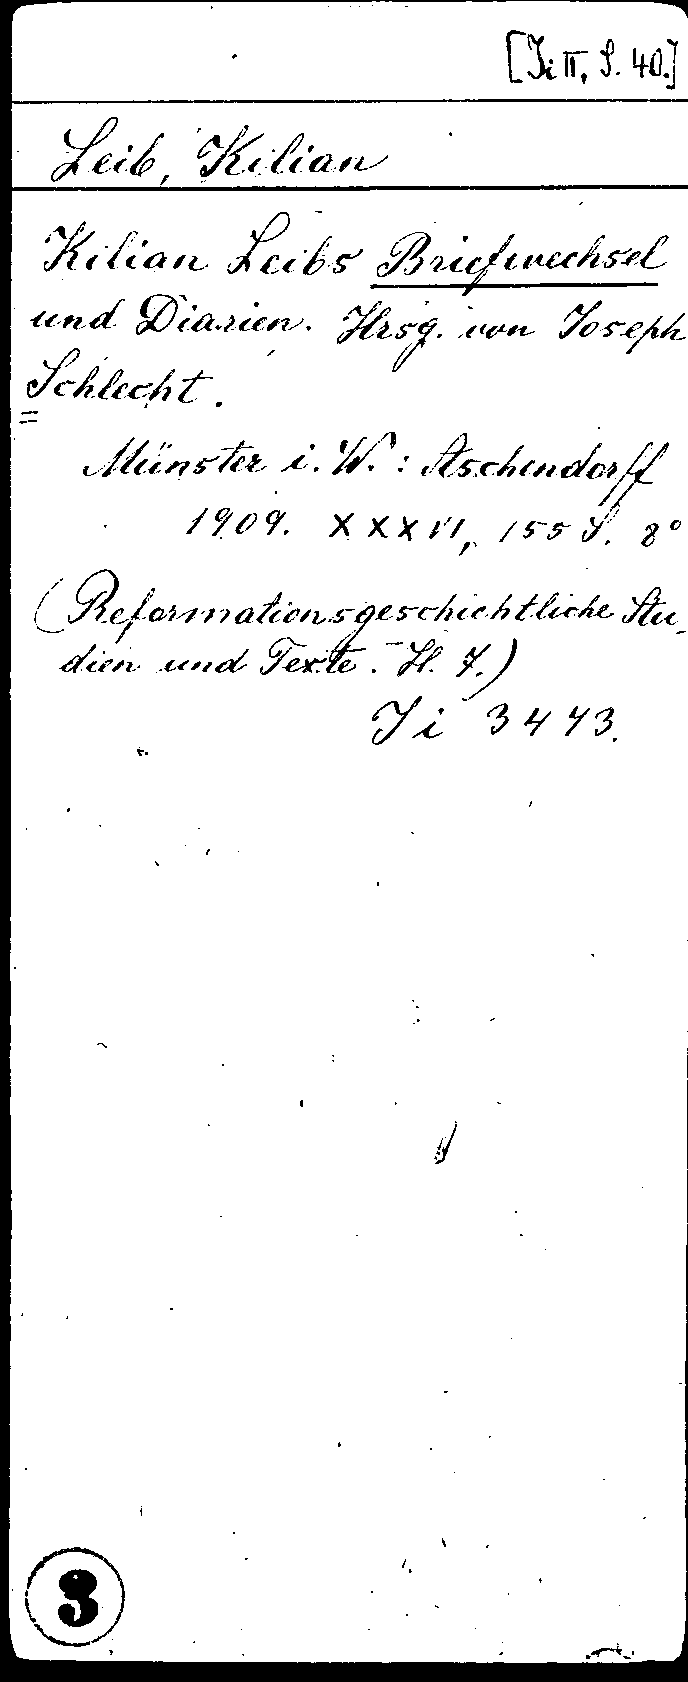 [Ji II, S. 40.]
Leib, Kilian
Kilian Leibs Briefwechsel
und Diarien. Hrsg. von Joseph
Schlecht.
Münster i. W. : Aschendorff
1909. XXXVI, 155 S. 8°
(Reformationsgeschichtliche Stu-
dien und Texte. H. 7.)
Ji 3443.
3